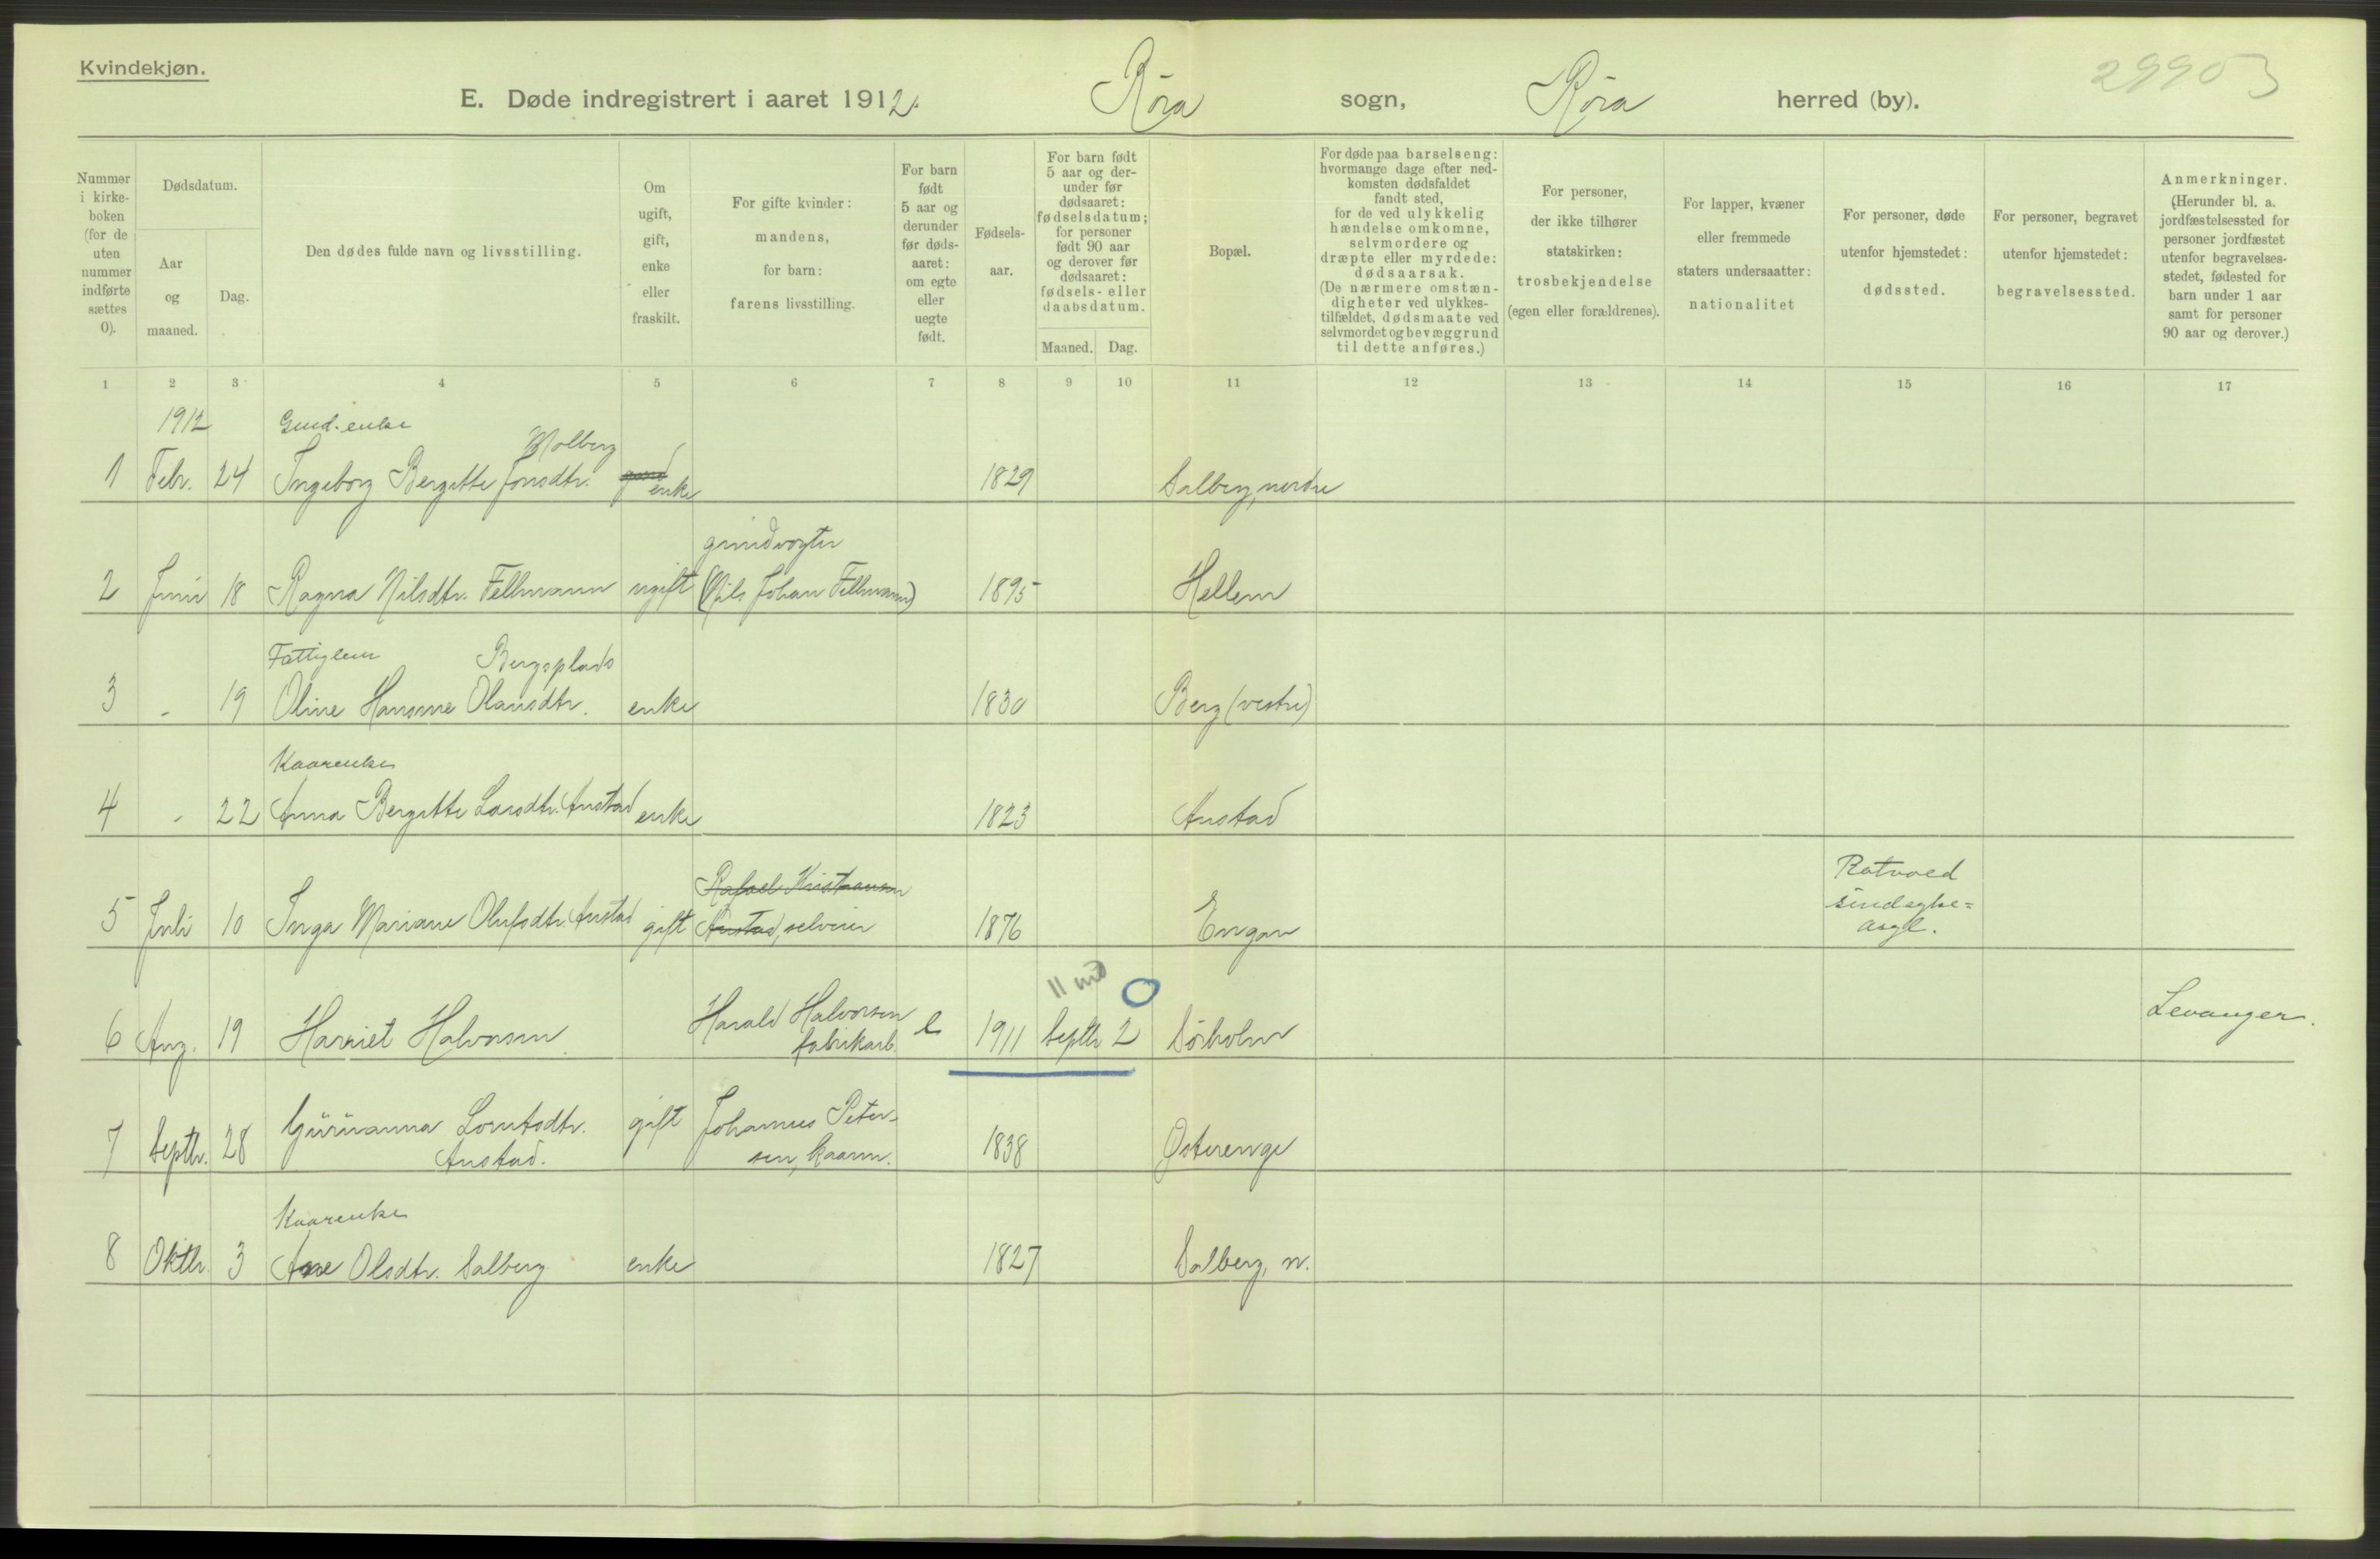 Kvindekjøn.
29903
E. Døde indregistrert i aaret 1912. Röra sogn, Röra herred (by).
Nummer i kirke-boken (for de uten nummer indførte sættes 0).
Dødsdatum.
Aar og maaned.
Dag.
Den dødes fulde navn og livsstilling.
Om ugift, gift, enke eller fraskilt.
For gifte kvinder: mandens, for barn: farens livsstilling.
For barn født 5 aar og derunder før døds-aaret: om egte eller uegte født.
Fødsels-aar.
For barn født 5 aar og der-under før dødsaaret: fødselsdatum; for personer født 90 aar og derover før dødsaaret: fødsels- eller daabsdatum.
Maaned. Dag.
Bopæl.
For døde paa barselseng: hvormange dage efter ned-komsten dødsfaldet fandt sted, for de ved ulykkelig hændelse omkomne, selvmordere og dræpte eller myrdede: dødsaarsak. (De nærmere omstæn-digheter ved ulykkes-tilfældet, dødsmaate ved selvmordet og bevæggrund til dette anføres.)
For personer, der ikke tilhører statskirken: trosbekjendelse (egen eller forældrenes).
For lapper, kvæner eller fremmede staters undersaatter: nationalitet
For personer, døde utenfor hjemstedet: dødssted.
For personer, begravet utenfor hjemstedet: begravelsessted.
Anmerkninger. (Herunder bl. a. jordfæstelsessted for personer jordfæstet utenfor begravelses-stedet, fødested for barn under 1 aar samt for personer 90 aar og derover.)
1 2 3 4 5 6 7 8 9 10 11 12 13 14 15 16 17
1912 Gaard.enke
Molberg
1 Febr. 24 Ingeborg Bergitte Jonsdtr. enke 1829 Salberg, nordre
grindvogter
2 Juni 18 Ragna Nilsdtr. Fellmann ugift (Nils Johan Fellmann) 1895 Hellem
Fattiglem Bergsplads
3 - 19 Oline Hansine Olausdtr. enke 1830 Berg (vestre)
Kaarenke
4 - 22 Anna Bergitte Larsdtr. Austad enke 1823 Austad
Rafael Kristiansen Rotvold
5 Juli 10 Inga Mariane Olufsdtr. Austad gift Austad, selveier 1876 Engan sindsyke=
asyl.
11 md 0
6 Aug. 19 Harriet Halvorsen Harald Halvorsen e 1911 Septbr 2 Sörholm Levanger.
fabrikarb.
7 Septbr. 28 Gürüanna Lorntsdtr. gift Johannes Peter- 1838 Østerenge
Austad. sen, kaarm.
Kaarenke
8 Oktbr. 3 Ane Olsdtr. Salberg enke 1827 Salberg, n.